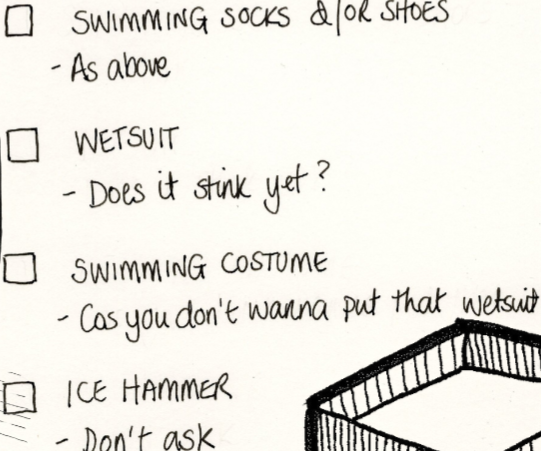 SWIMMING SOCKS &/OR SHOES
- As above
WETSUIT
- Does it stink yet?
SWIMMING COSTUME
- Cos you don't wanna put that wetsuit
ICE HAMMER
- Don't ask